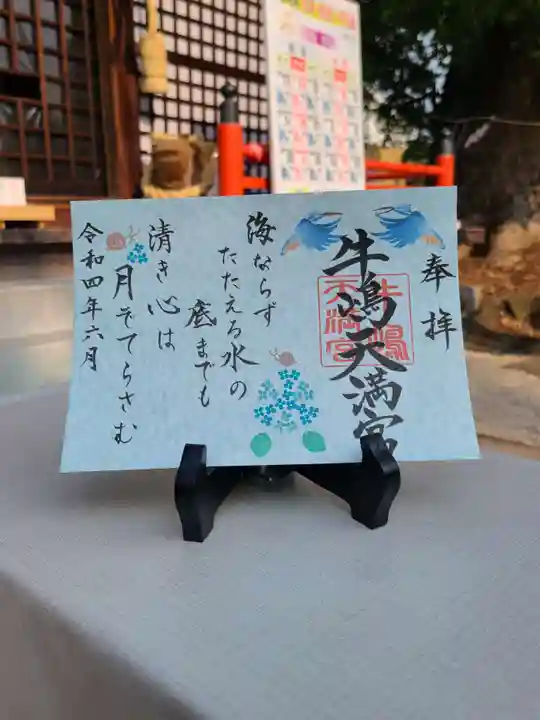 奉拝
牛嶋天満宮
牛嶋
天満宮
海ならず
たたえる水の
底までも
清き心は
月ぞてらさむ
令和四年六月